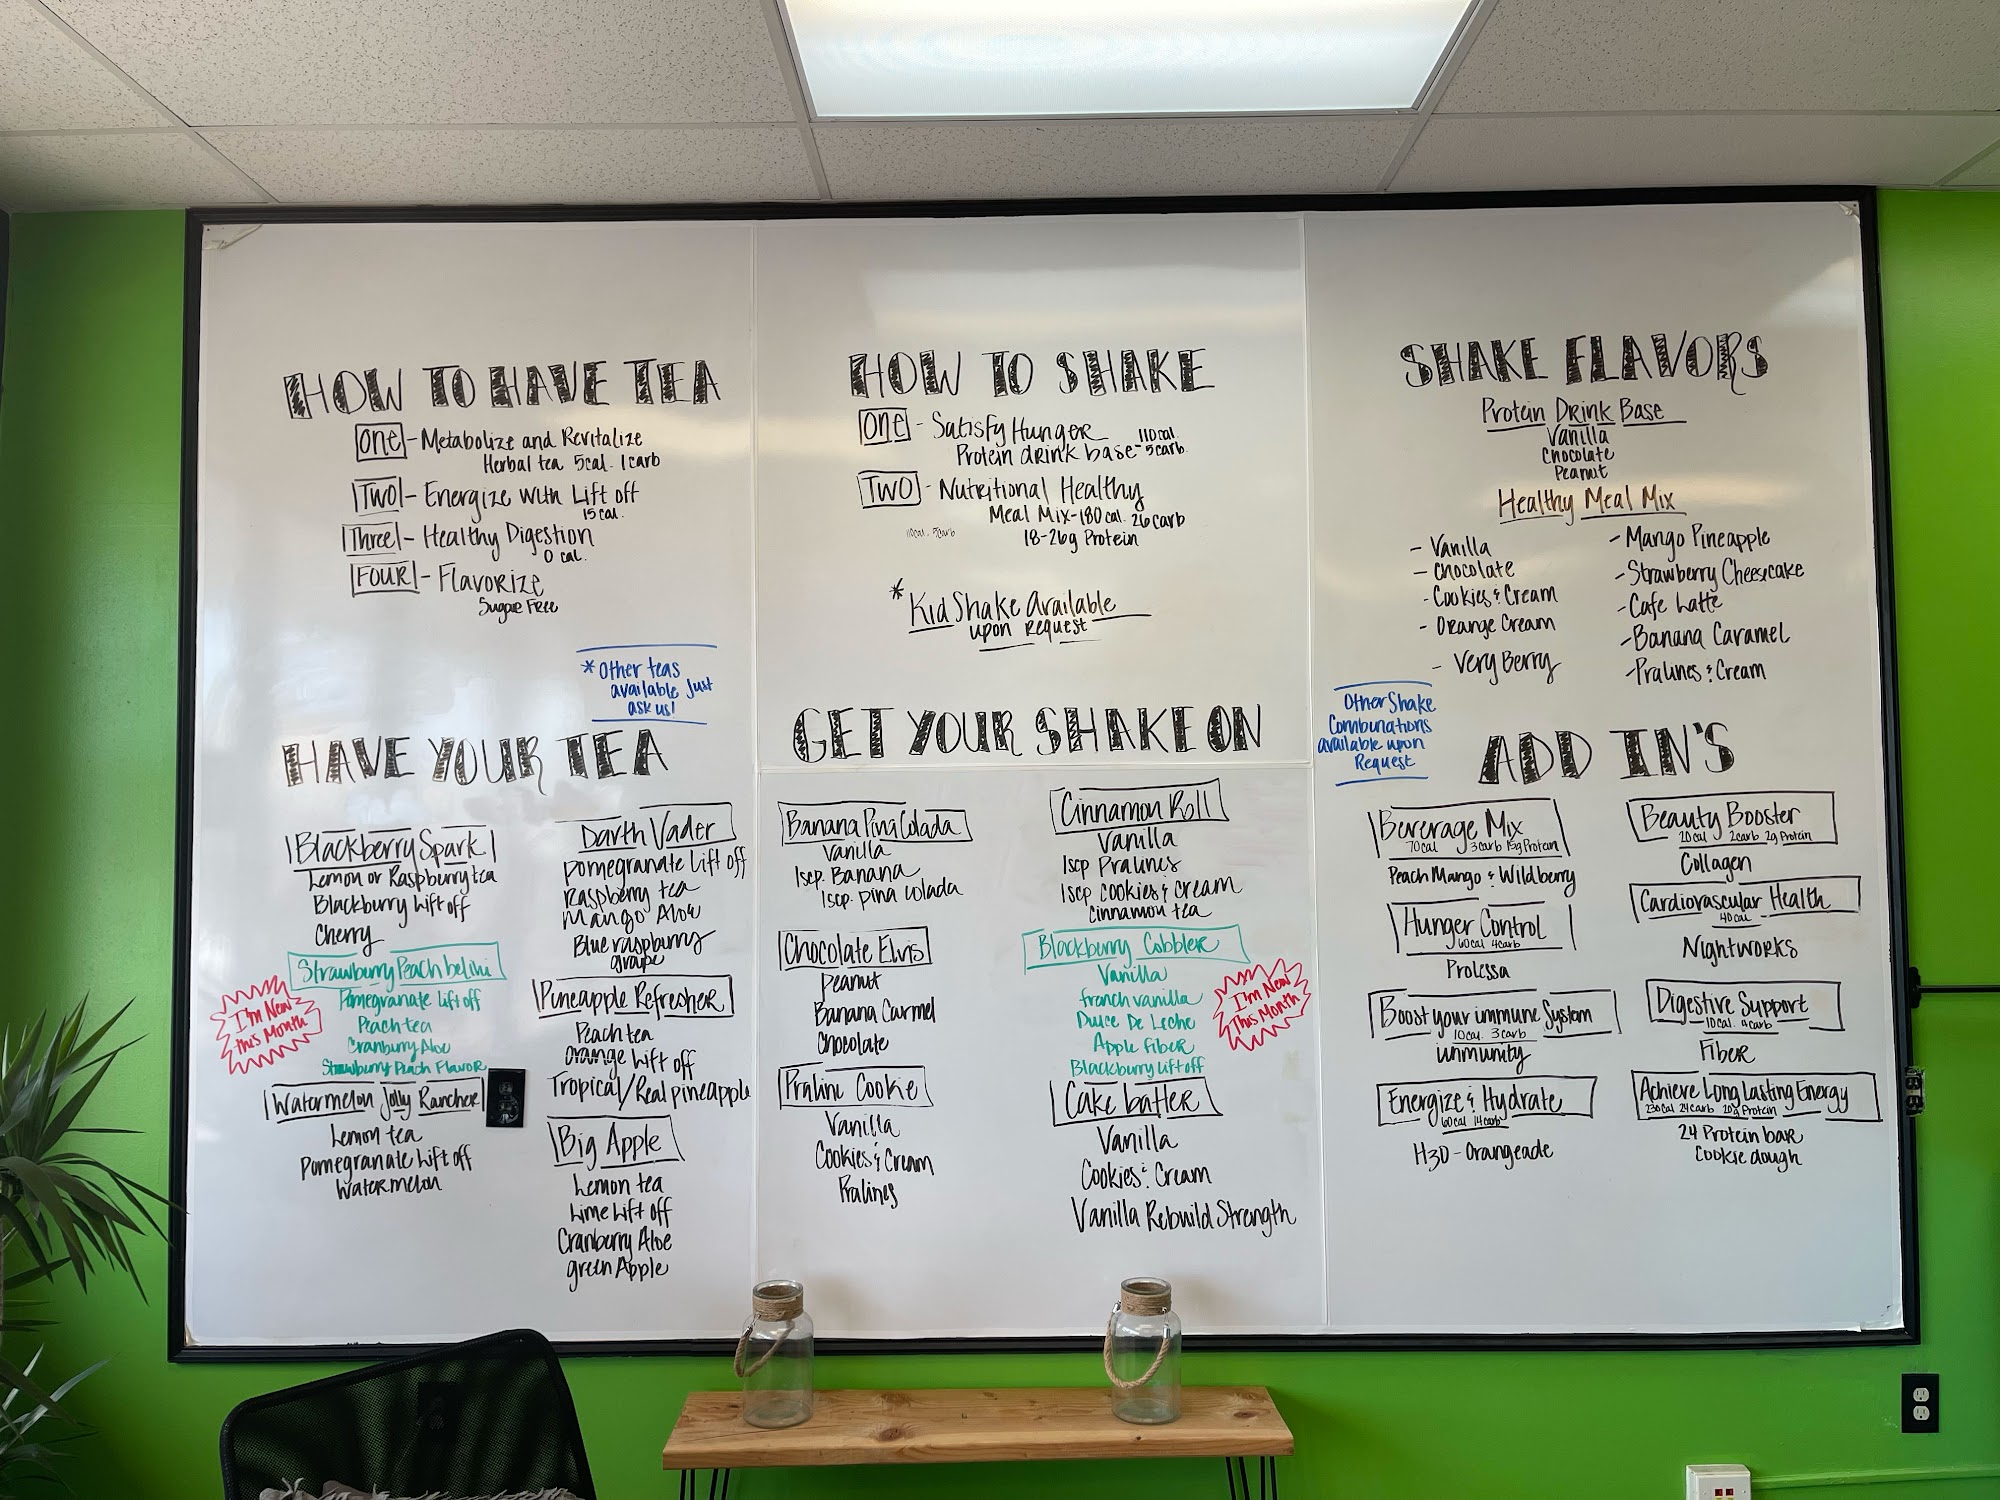 HOW TO HAVE TEA
One - Metabolize and Revitalize
Herbal tea 5cal. 1carb
Two - Energize with Lift off
15 cal.
Three - Healthy Digestion
0 cal.
FOUR - Flavorize
Sugar Free
*Other teas
available Just
ask us!
HAVE YOUR TEA
Blackberry Spark
Lemon or Raspberry tea
Blackberry Lift off
Cherry
Strawberry Peach belini
Pomegranate lift off
Peach tea
Cranberry Aloe
Strawberry Peach Flavor
I'm New
this Month
Watermelon Jolly Rancher
Lemon tea
Pomegranate Lift off
Watermelon
Darth Vader
Pomegranate Lift off
Raspberry tea
Mango Aloe
Blue raspberry
grape
Pineapple Refresher
Peach tea
orange Lift off
Tropical/Real pineapple
Big Apple
Lemon tea
Lime Lift off
Cranberry Aloe
green Apple
HOW TO SHAKE
One - Satisfy Hunger
Protein drink base - 110cal. 5carb.
TWO - Nutritional Healthy
Meal Mix - 180 cal. 26 carb
18-26g Protein
110cal. 5carb
* Kid Shake Available
upon Request
GET YOUR SHAKE ON
Banana Pina Colada
Vanilla
1scp. Banana
1scp. pina colada
Chocolate Elvis
Peanut
Banana Carmel
Chocolate
Praline Cookie
Vanilla
Cookies & Cream
Pralines
Cinnamon Roll
Vanilla
1scp Pralines
1scp cookies & cream
Cinnamon tea
Blackberry Cobbler
Vanilla
french vanilla
Dulce De Leche
Apple fiber
Blackberry lift off
I'm New
This Month
Cake batter
Vanilla
Cookies & Cream
Vanilla Rebuild Strength
SHAKE FLAVORS
Protein Drink Base
Vanilla
Chocolate
Peanut
Healthy Meal Mix
- Vanilla
- Chocolate
- Cookies & Cream
- Orange Cream
- Very Berry
- Mango Pineapple
- Strawberry Cheesecake
- Cafe Latte
- Banana Caramel
- Pralines & Cream
Other Shake
Combinations
available upon
Request
ADD IN'S
Beverage Mix
70cal 3carb 15g Protein
Peach Mango & Wildberry
Hunger Control
60cal 4carb
Prolessa
Boost your immune System
10cal. 3 carb
immunity
Energize & Hydrate
60cal 14carb
H3O - Orangeade
Beauty Booster
20cal 2carb 2g Protein
Collagen
Cardiovascular Health
40cal
Nightworks
Digestive Support
10cal. 4carb
Fiber
Achieve Long Lasting Energy
230cal 24carb 20g Protein
24 Protein bar
Cookie dough